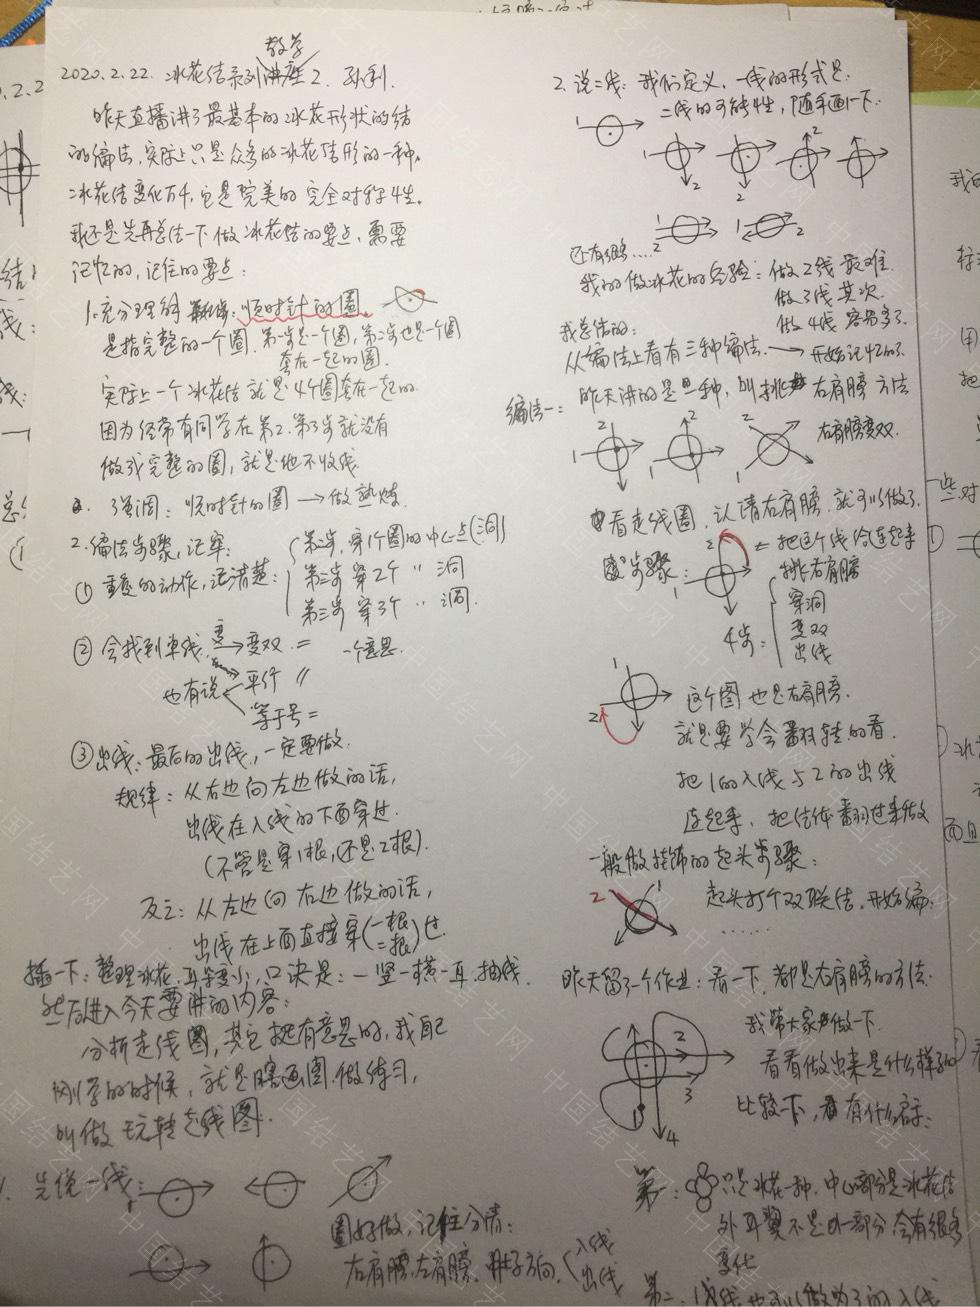 教学
2020.2.22. 冰花结系列讲座2. 孙利.
昨天直播讲了最基本的冰花形状的结
的编法,实际上只是众多的冰花结形的一种。
冰花结变化万千,它是完美的完全对称性。
我还是先再总结一下做冰花结的要点,需要
记忆的,记住的要点:
1.充分理解 顺时针的圈.
是指完整的一个圈.第一步是一个圈,第二步也是一个圈
套在一起的圈.
实际上一个冰花结就是4个圈套在一起的.
因为经常有同学在第2.第3步就没有
做成完整的圈,就是他不收线.
强调:顺时针的圈→做熟炼.
2.编法步骤,记牢:
①重复的动作,记清楚:
第一步,穿1个圈的中心点(洞)
第二步 穿2个 〃 洞
第三步 穿3个 〃 洞.
②会找到单线,变→变双 =
一个意思.
也有说←平行 〃
等于号=
③出线:最后的出线,一定要做.
规律:从右边向左边做的话,
出线在入线的下面穿过.
(不管是穿1根,还是2根).
反之:从左边向右边做的话,
出线在上面直接穿(一根 二根)过.
插一下:整理冰花,耳朵变小,口诀是:一竖一横一直抽线.
然后进入今天要讲的内容:
分析走线图,其它挺有意思的,我自己
刚学的时候,就是瞎画图.做练习,
叫做玩转走线图.
1.先说一线:
1
圈好做,记住分清:
左肩膀,右肩膀.
入线
出线
2.说二线:我们定义,一线的形式是.
二线的可能性,随手画一下.
1
1 2
1 2
1 2
1 2
1 2
1 2
还有很多....
我的做冰花的经验:做2线最难.
做3线其次.
做4线容易多了.
我总结的:
从编法上看有三种编法.→开始记忆的了.
编法一:昨天讲的是一种,叫挑右肩膀方法
2 1
2 1
2 1
右肩膀变双.
看走线图,认清右肩膀,就可以做了.
步骤:
2 1
=把这个线给连起来
挑右肩膀
4步:
穿洞
变双
出线
1
2
这个图也是右肩膀.
就是要学会翻转的看.
把1的入线与2的出线
连起来,把结体翻过来做
一般做挂饰的起头步骤:
2 1
起头打个双联结,开始编:
......
昨天留了一个作业:看一下,都是右肩膀的方法.
我带大家做一下.
看看做出来是什么样子的
比较一下,看有什么启示:
1 2 3 4
第一: 只是冰花一种.中心部分是冰花结
外耳翼不是外部分,会有很多
变化
第二.1线也可以做为3的入线